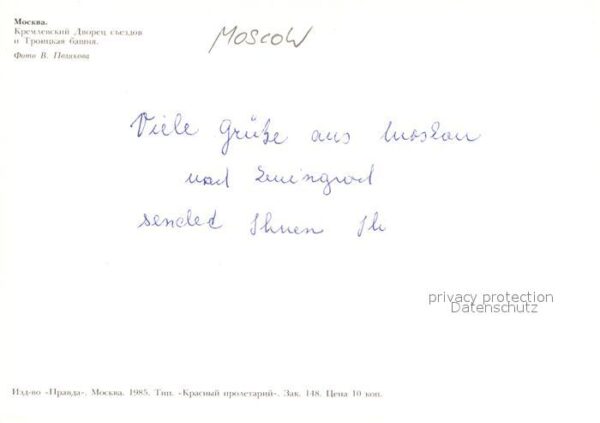 Москва.
Кремлевский Дворец съездов
и Троицкая башня.
Фото В. Полякова
MOSCOW
Viele Grüße aus Moskau
und Leningrad
sendet Ihnen Ih
privacy protection
Datenschutz
Изд-во «Правда». Москва. 1985. Тип. «Красный пролетарий». Зак. 148. Цена 10 коп.